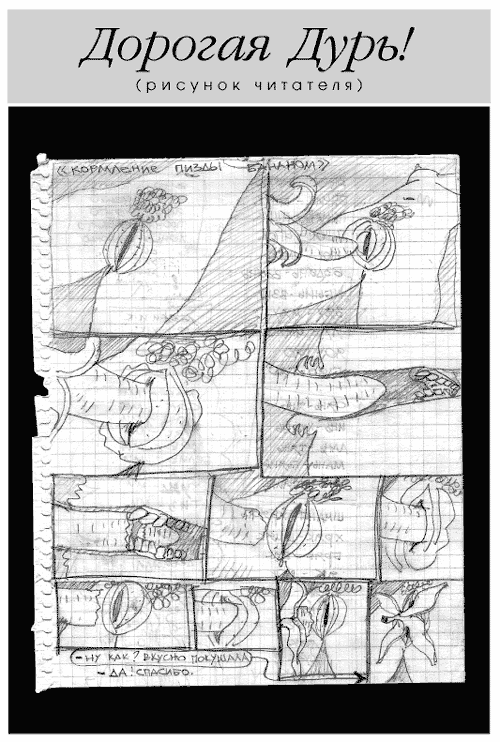 Дорогая Дурь!
(рисунок читателя)
«КОРМЛЕНИЕ ПИЗДЫ БАНАНОМ»
- НУ КАК? ВКУСНО ПОКУШАЛА
- ДА. СПАСИБО.